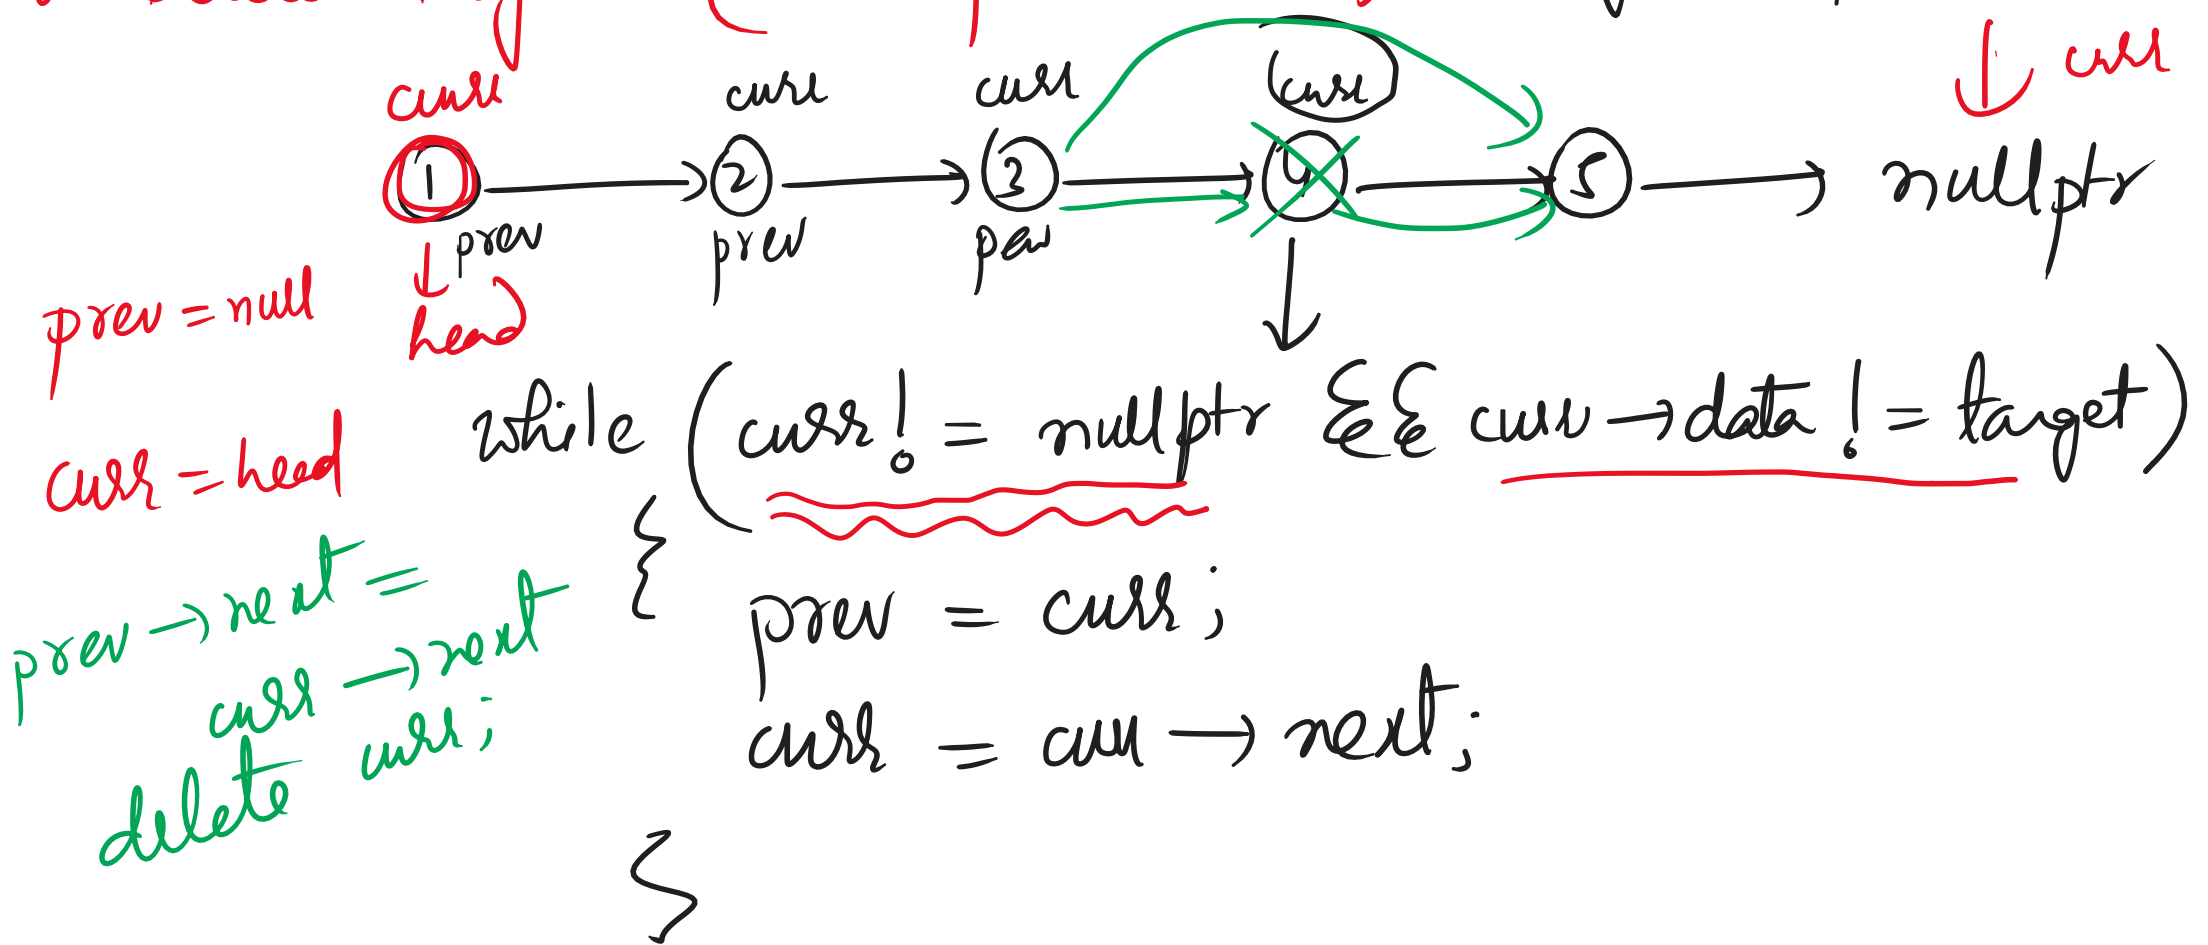 curr curr curr curr curr
1 2 3 4 5 nullptr
prev prev prev
head
prev = null
curr = head
while (curr != nullptr && curr → data != target)
{
prev = curr;
curr = curr → next;
}
prev → next =
curr → next
delete curr;